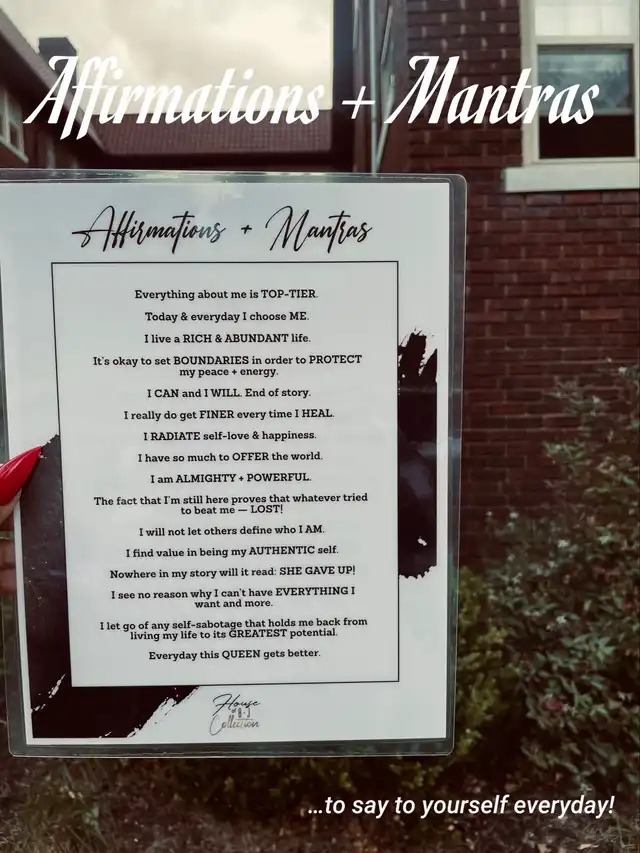 Affirmations + Mantras
Affirmations + Mantras
Everything about me is TOP-TIER.
Today & everyday I choose ME.
I live a RICH & ABUNDANT life.
It's okay to set BOUNDARIES in order to PROTECT
my peace + energy.
I CAN and I WILL. End of story.
I really do get FINER every time I HEAL.
I RADIATE self-love & happiness.
I have so much to OFFER the world.
I am ALMIGHTY + POWERFUL.
The fact that I'm still here proves that whatever tried
to beat me — LOST!
I will not let others define who I AM.
I find value in being my AUTHENTIC self.
Nowhere in my story will it read: SHE GAVE UP!
I see no reason why I can't have EVERYTHING I
want and more.
I let go of any self-sabotage that holds me back from
living my life to its GREATEST potential.
Everyday this QUEEN gets better.
House
Collection
...to say to yourself everyday!